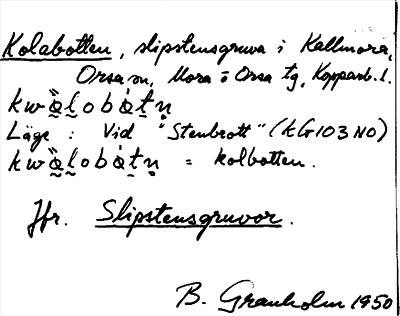 Kolabotten, slipstensgruva i Kallmora,
Orsa sn, Mora o Orsa tg, Kopparb. l.
kwa̰̍l̰obo̍a̍tn̥
Läge : Vid "Stenbrott" (KG103NO)
kwa̰̍l̰obo̍a̍tn̥ = kolbotten.
Jfr. Slipstensgruvor.
B. Granholm 1950